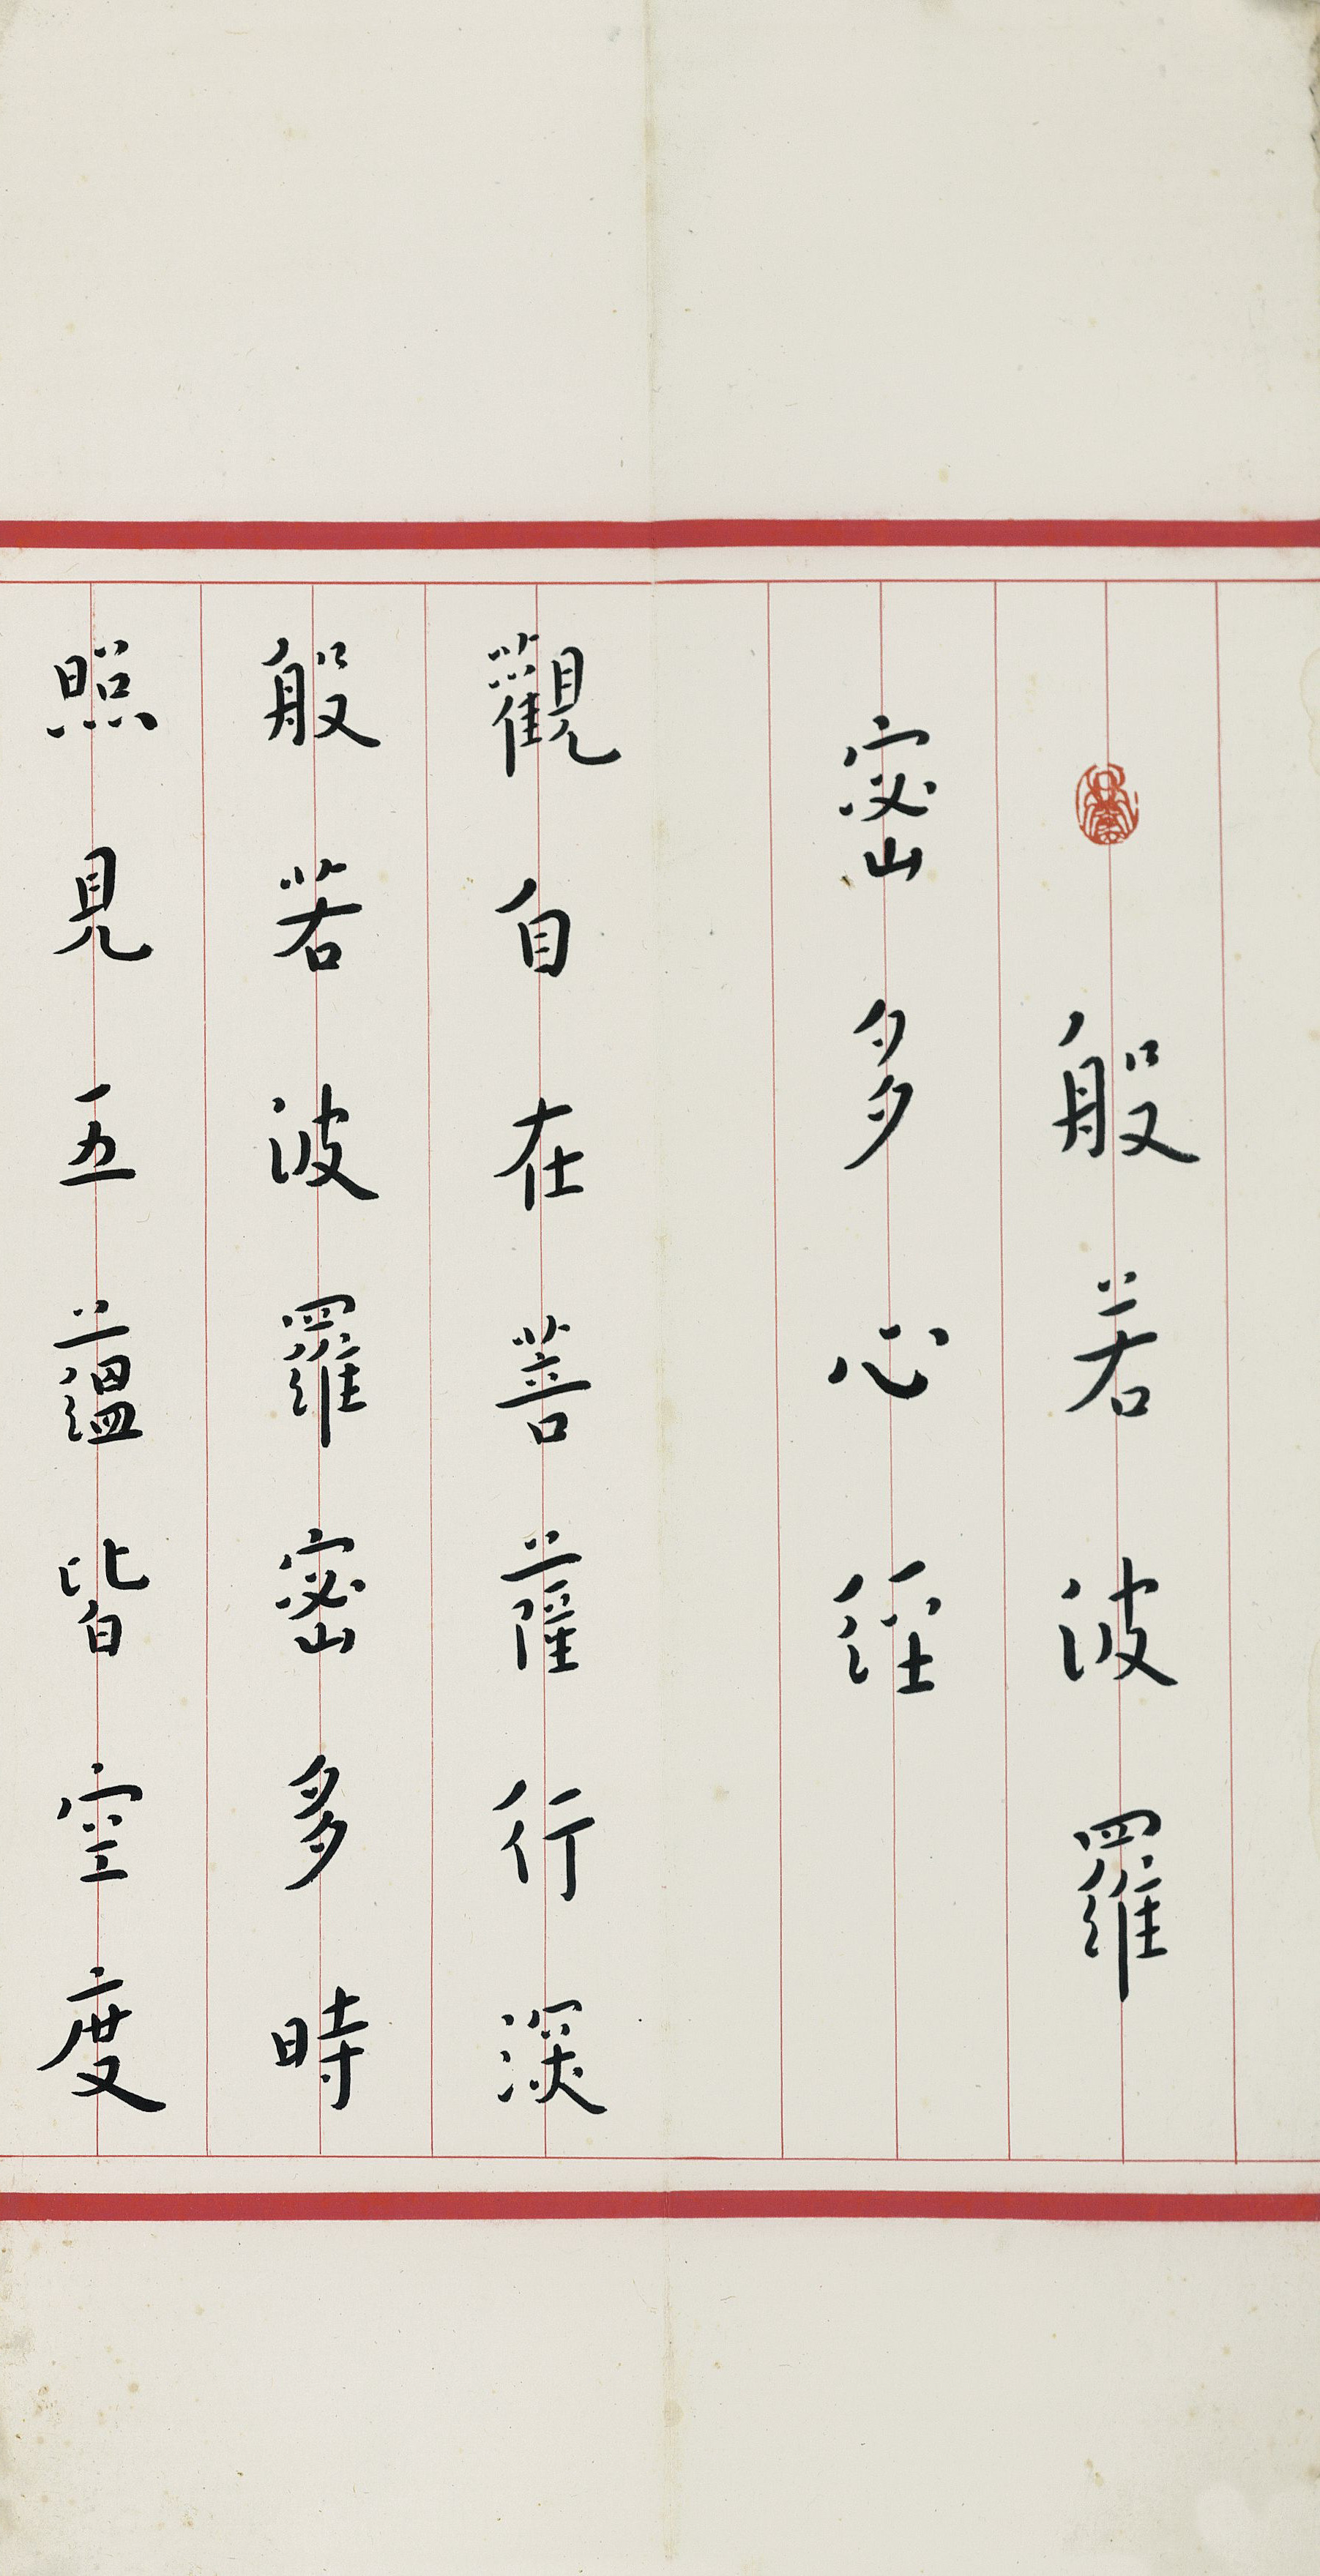 般若波羅
密多心經
觀自在菩薩行深
般若波羅密多時
照見五蘊皆空度